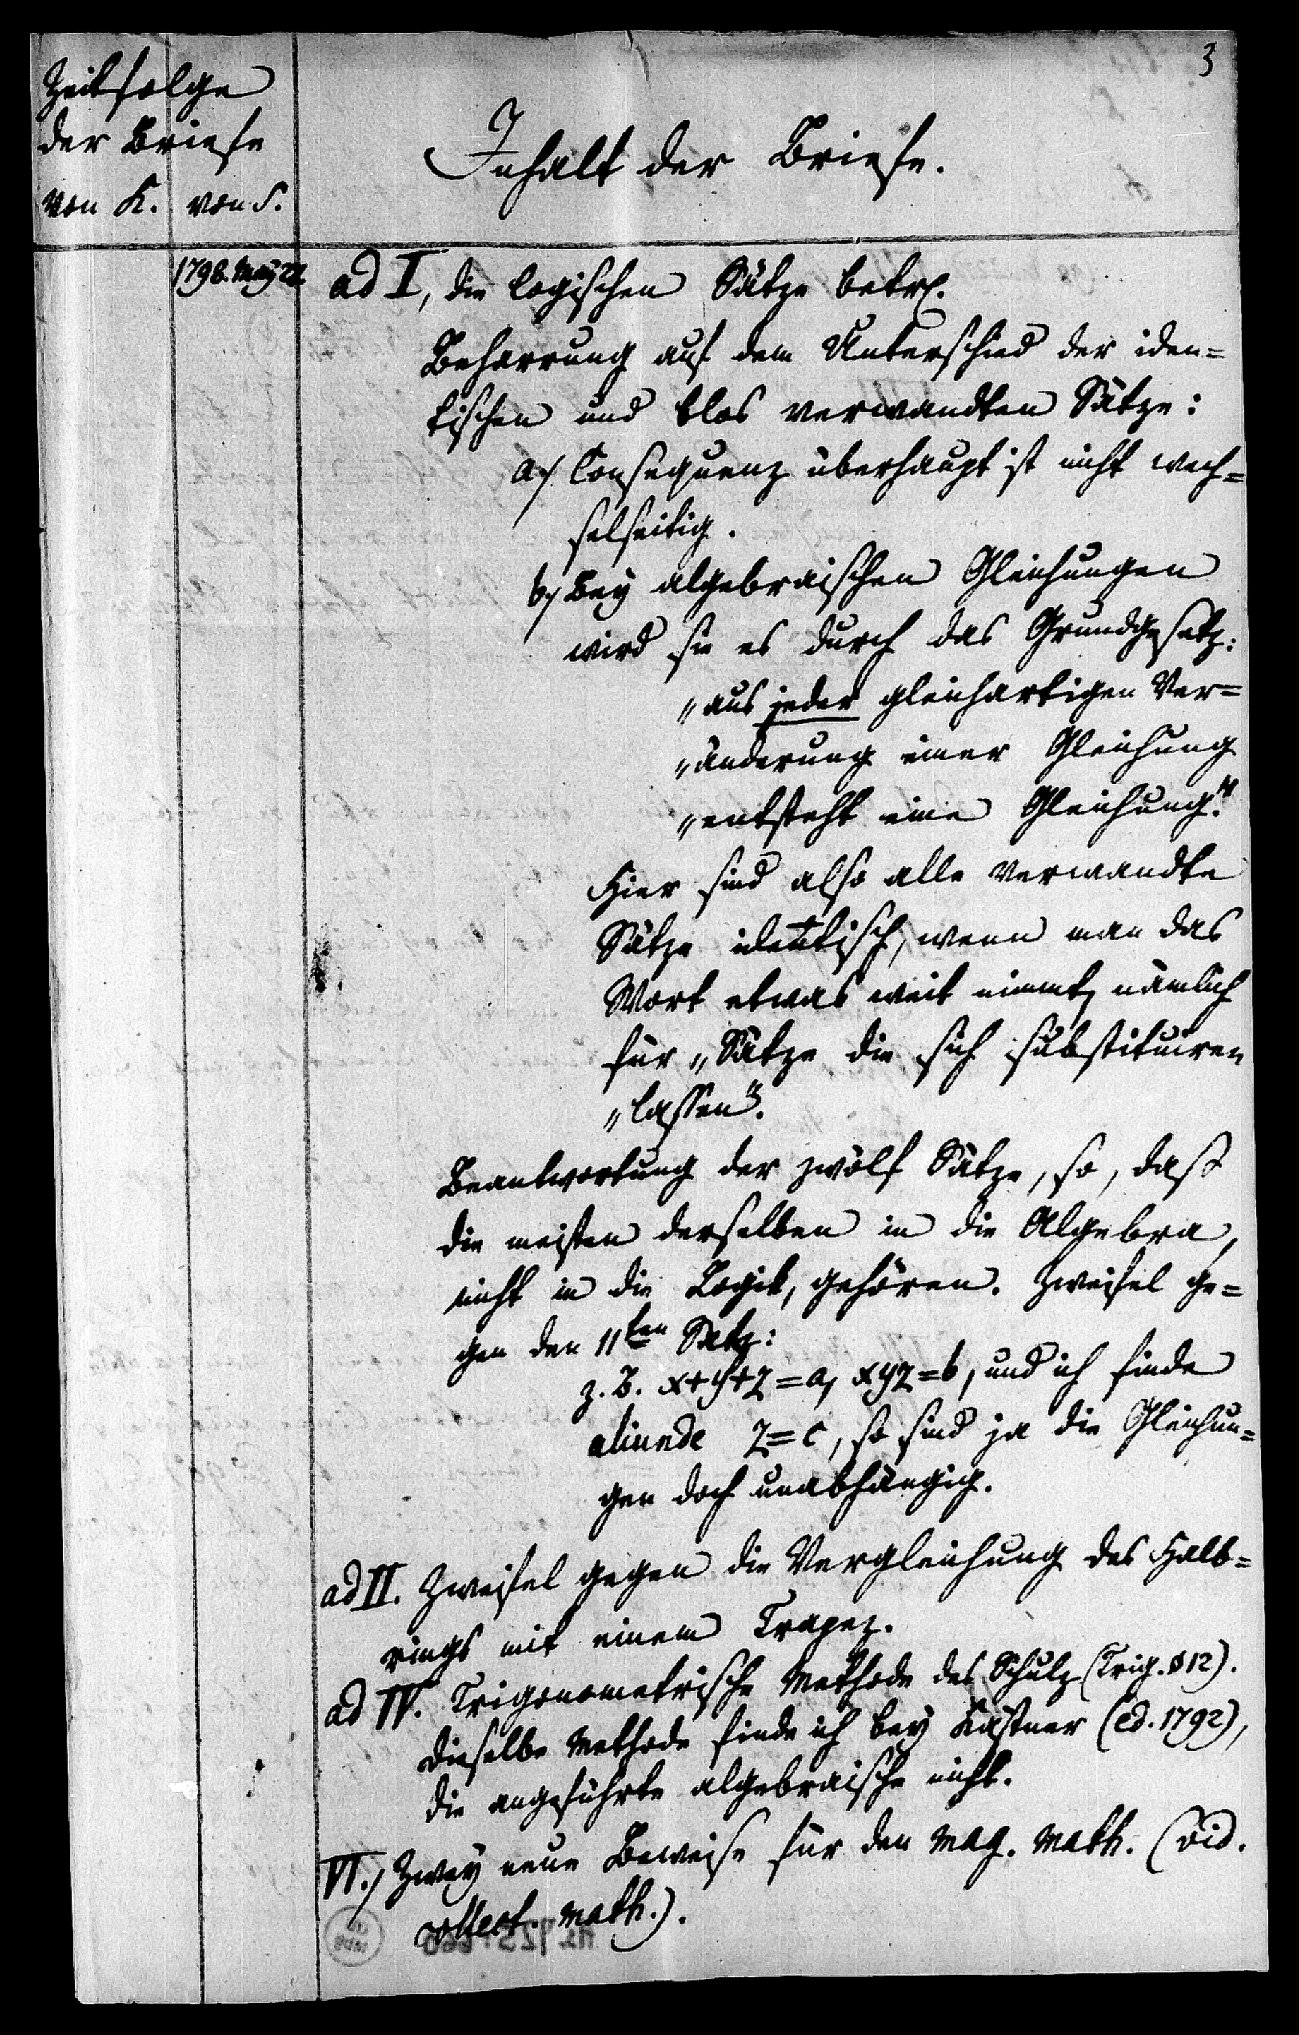 3
Zeitfolge
der Briefe
von K. von S.
Inhalt der Briefe.
1798. May 22.
ad I, die logischen Sätze betr.
Beharrung auf dem Unterschied der iden=
tischen und blos verwandten Sätze:
a) Consequenz überhaupt ist nicht wech=
selseitig.
b) Bey algebraischen Gleichungen
wird sie es durch das Grundgesetz:
„aus jeder gleichartigen Ver=
„änderung einer Gleichung
„entsteht eine Gleichung."
Hier sind also alle verwandte
Sätze identisch, wenn man das
Wort etwas weit nimmt, nämlich
für „Sätze die sich substituiren
„lassen".
Beantwortung der zwölf Sätze, so, daß
die meisten derselben in die Algebra,
nicht in die Logik, gehören. Zweifel ge=
gen den 11ten Satz:
z. B. x+y+z=a, xyz=b, und ich finde
aliunde z=c, so sind ja die Gleichun=
gen doch unabhängig.
ad II. Zweifel gegen die Vergleichung des Halb=
rings mit einem Trapez.
ad IV. Trigonometrische Methode des Schulz (Trig. §12).
dieselbe Methode finde ich bey Kästner (Ed. 1792),
die angeführte algebraische nicht.
VI.) Zwey neue Beweise für den Mag. Math. (vid.
collect. math.).